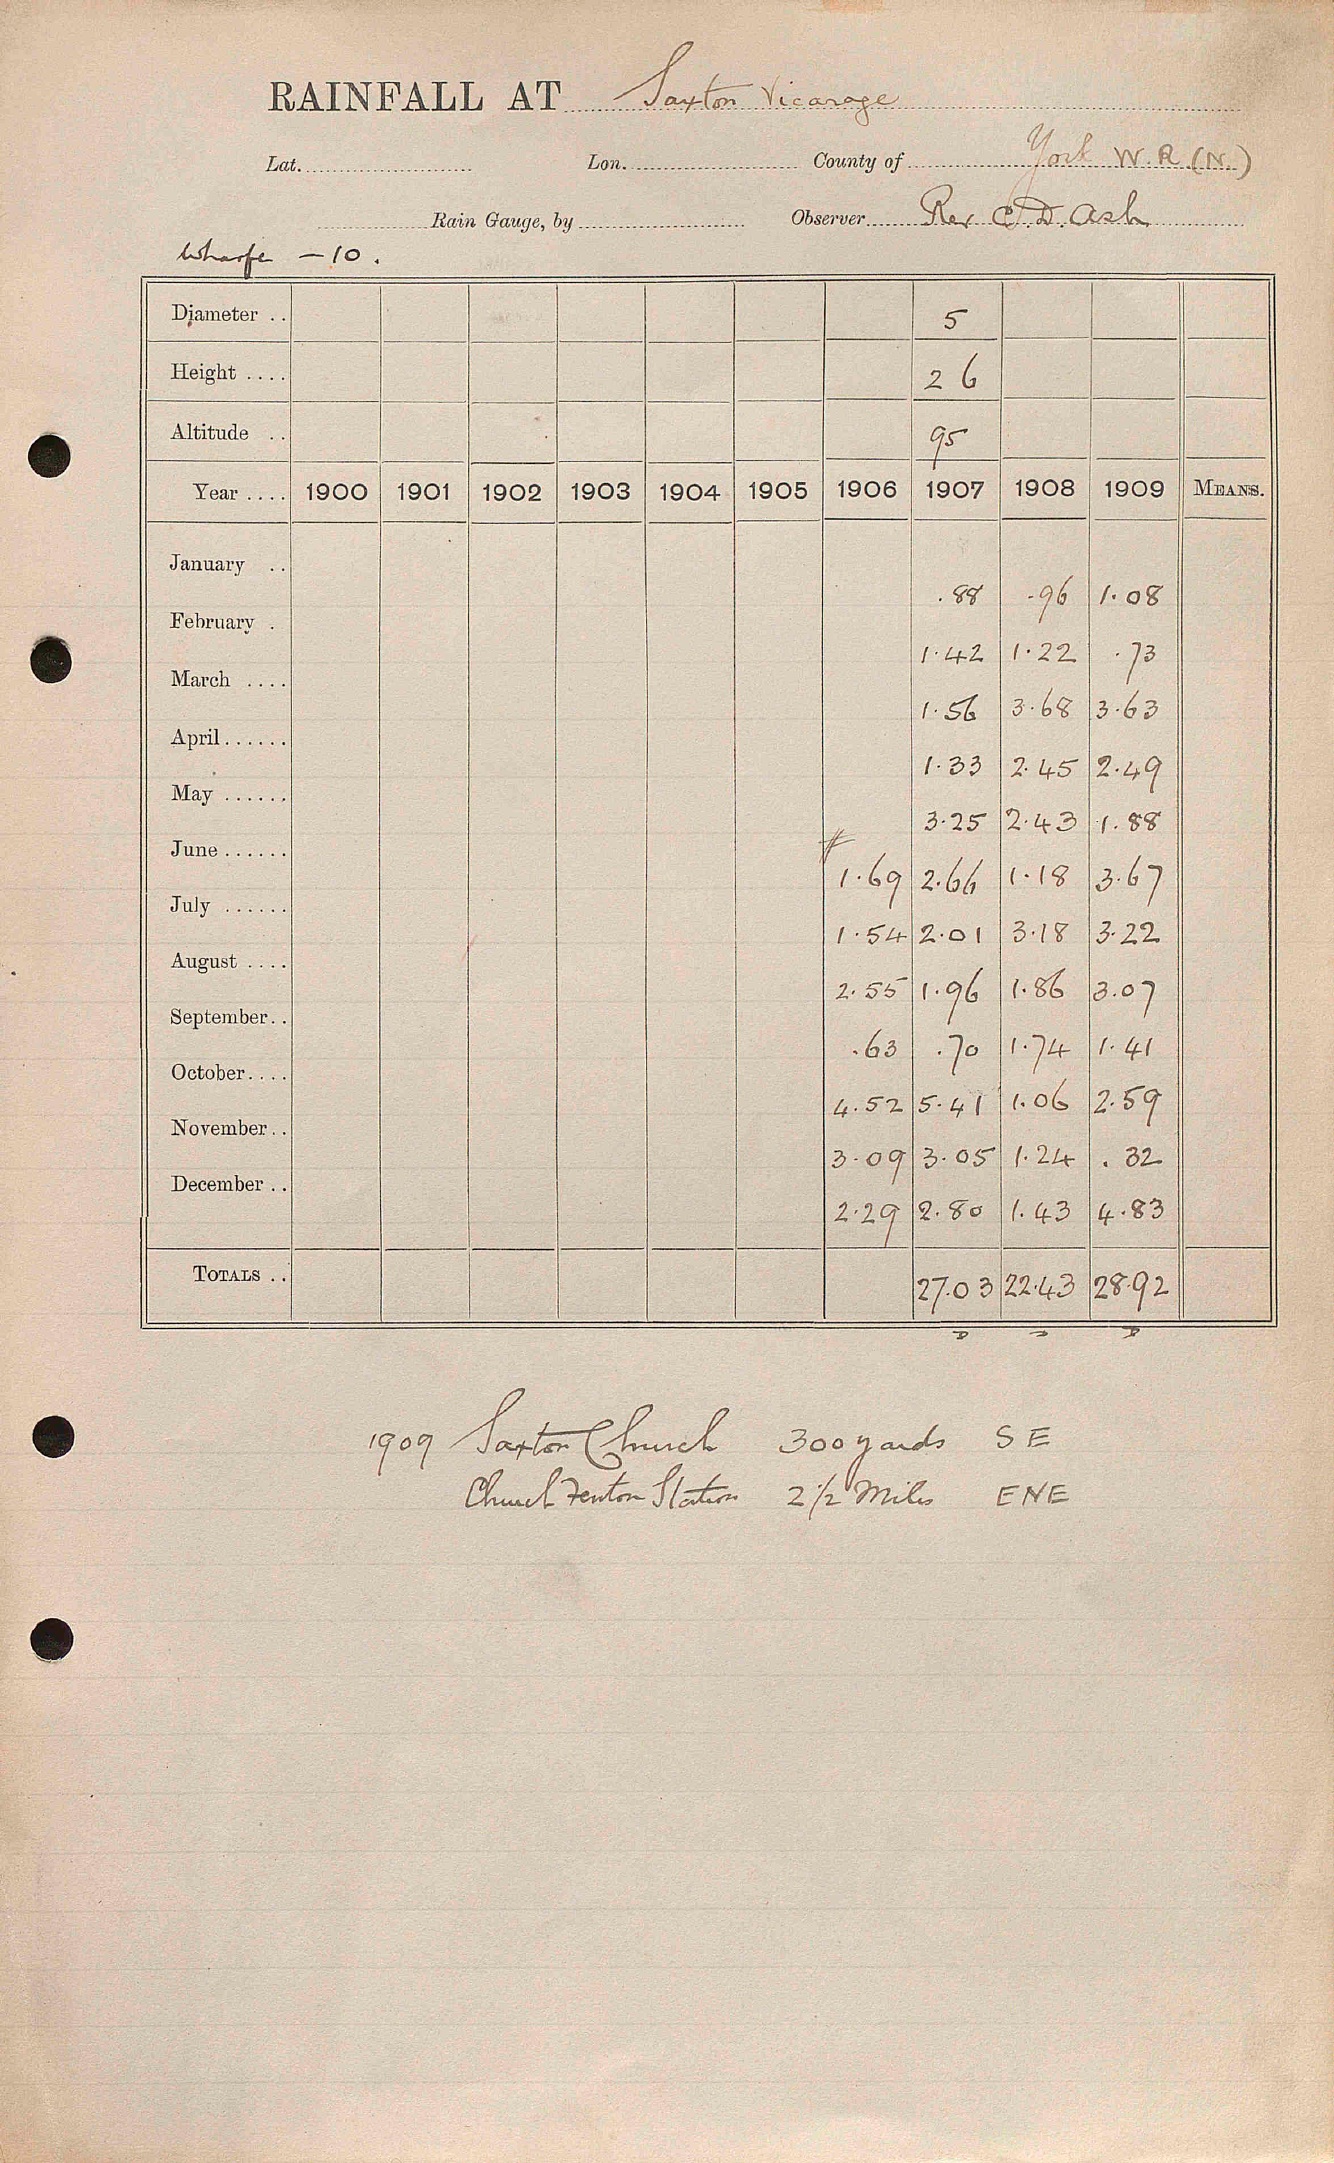 RAINFALL AT Saxton Vicarage
Lat. Lon. County of York W.R.(N.)
Rain Gauge, by Observer Rev C.D. Ash
Wharfe — 10.
Diameter .. 5
Height .... 2 6
Altitude .. 95
Year .... 1900 1901 1902 1903 1904 1905 1906 1907 1908 1909 MEANS.
January .. .88 .96 1.08
February . 1.42 1.22 .73
March .... 1.56 3.68 3.63
April...... 1.33 2.45 2.49
May ...... 3.25 2.43 1.88
June ...... 1.69 2.66 1.18 3.67
July ...... 1.54 2.01 3.18 3.22
August .... 2.55 1.96 1.86 3.07
September.. .63 .70 1.74 1.41
October.... 4.52 5.41 1.06 2.59
November.. 3.09 3.05 1.24 .32
December .. 2.29 2.80 1.43 4.83
TOTALS .. 27.03 22.43 28.92
1909 Saxton Church 300 yards SE
Church Fenton Station 2 1/2 Miles ENE